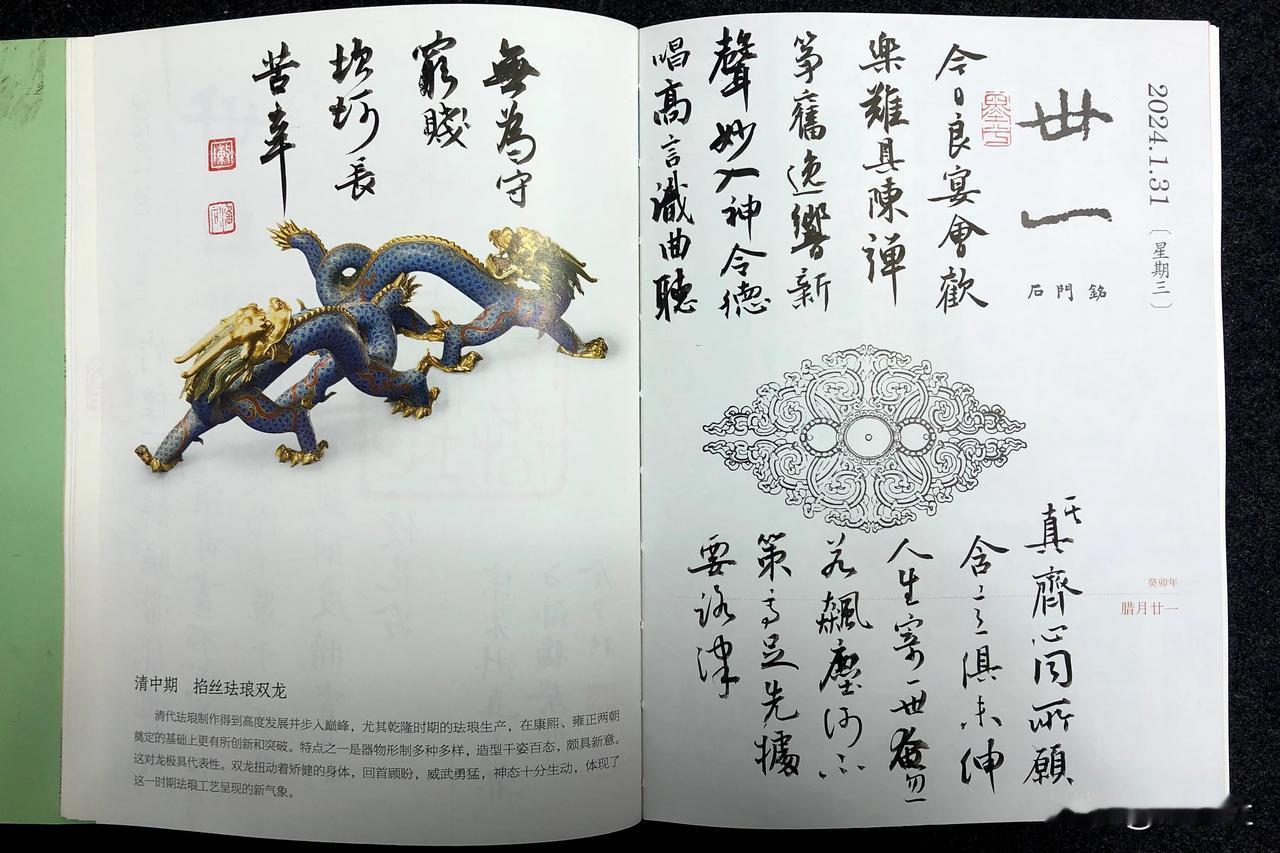 2024.1.31〔星期三〕
卅一
石門銘
今日良宴會歡
樂難具陳彈
箏奮逸響新
聲妙入神令德
唱高言識曲聽
其真齊心同所願
含意俱未伸
人生寄一世奄忽
若飆塵何不
策高足先據
要路津
癸卯年
腊月廿一
無為守
窮賤
坎坷長
苦辛
清中期 掐丝珐琅双龙
清代珐琅制作得到高度发展并步入巅峰，尤其乾隆时期的珐琅生产，在康熙、雍正两朝
奠定的基础上更有所创新和突破。特点之一是器物形制多种多样，造型千姿百态，颇具新意。
这对龙极具代表性。双龙扭动着矫健的身体，回首顾盼，威武勇猛，神态十分生动，体现了
这一时期珐琅工艺呈现的新气象。